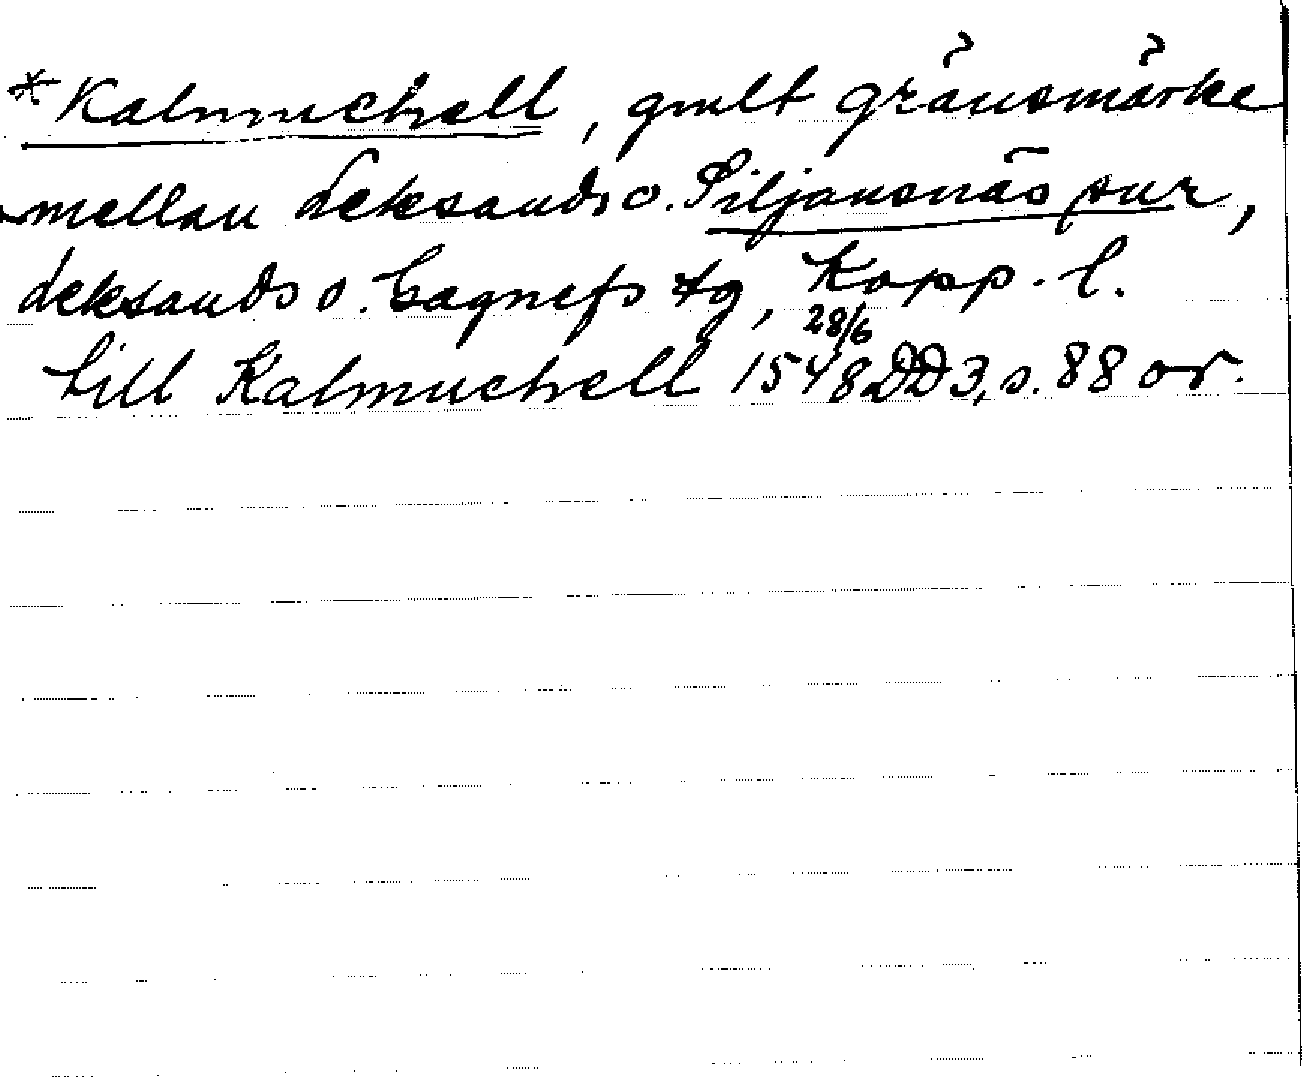 *Kalmuchell, gmlt gränsmärke
mellan Leksands o. Siljansnäs snr,
Leksands o. Gagnefs tg, Kopp. l.
till Kalmuchell 28/6 1548 DD3, s. 88 or.